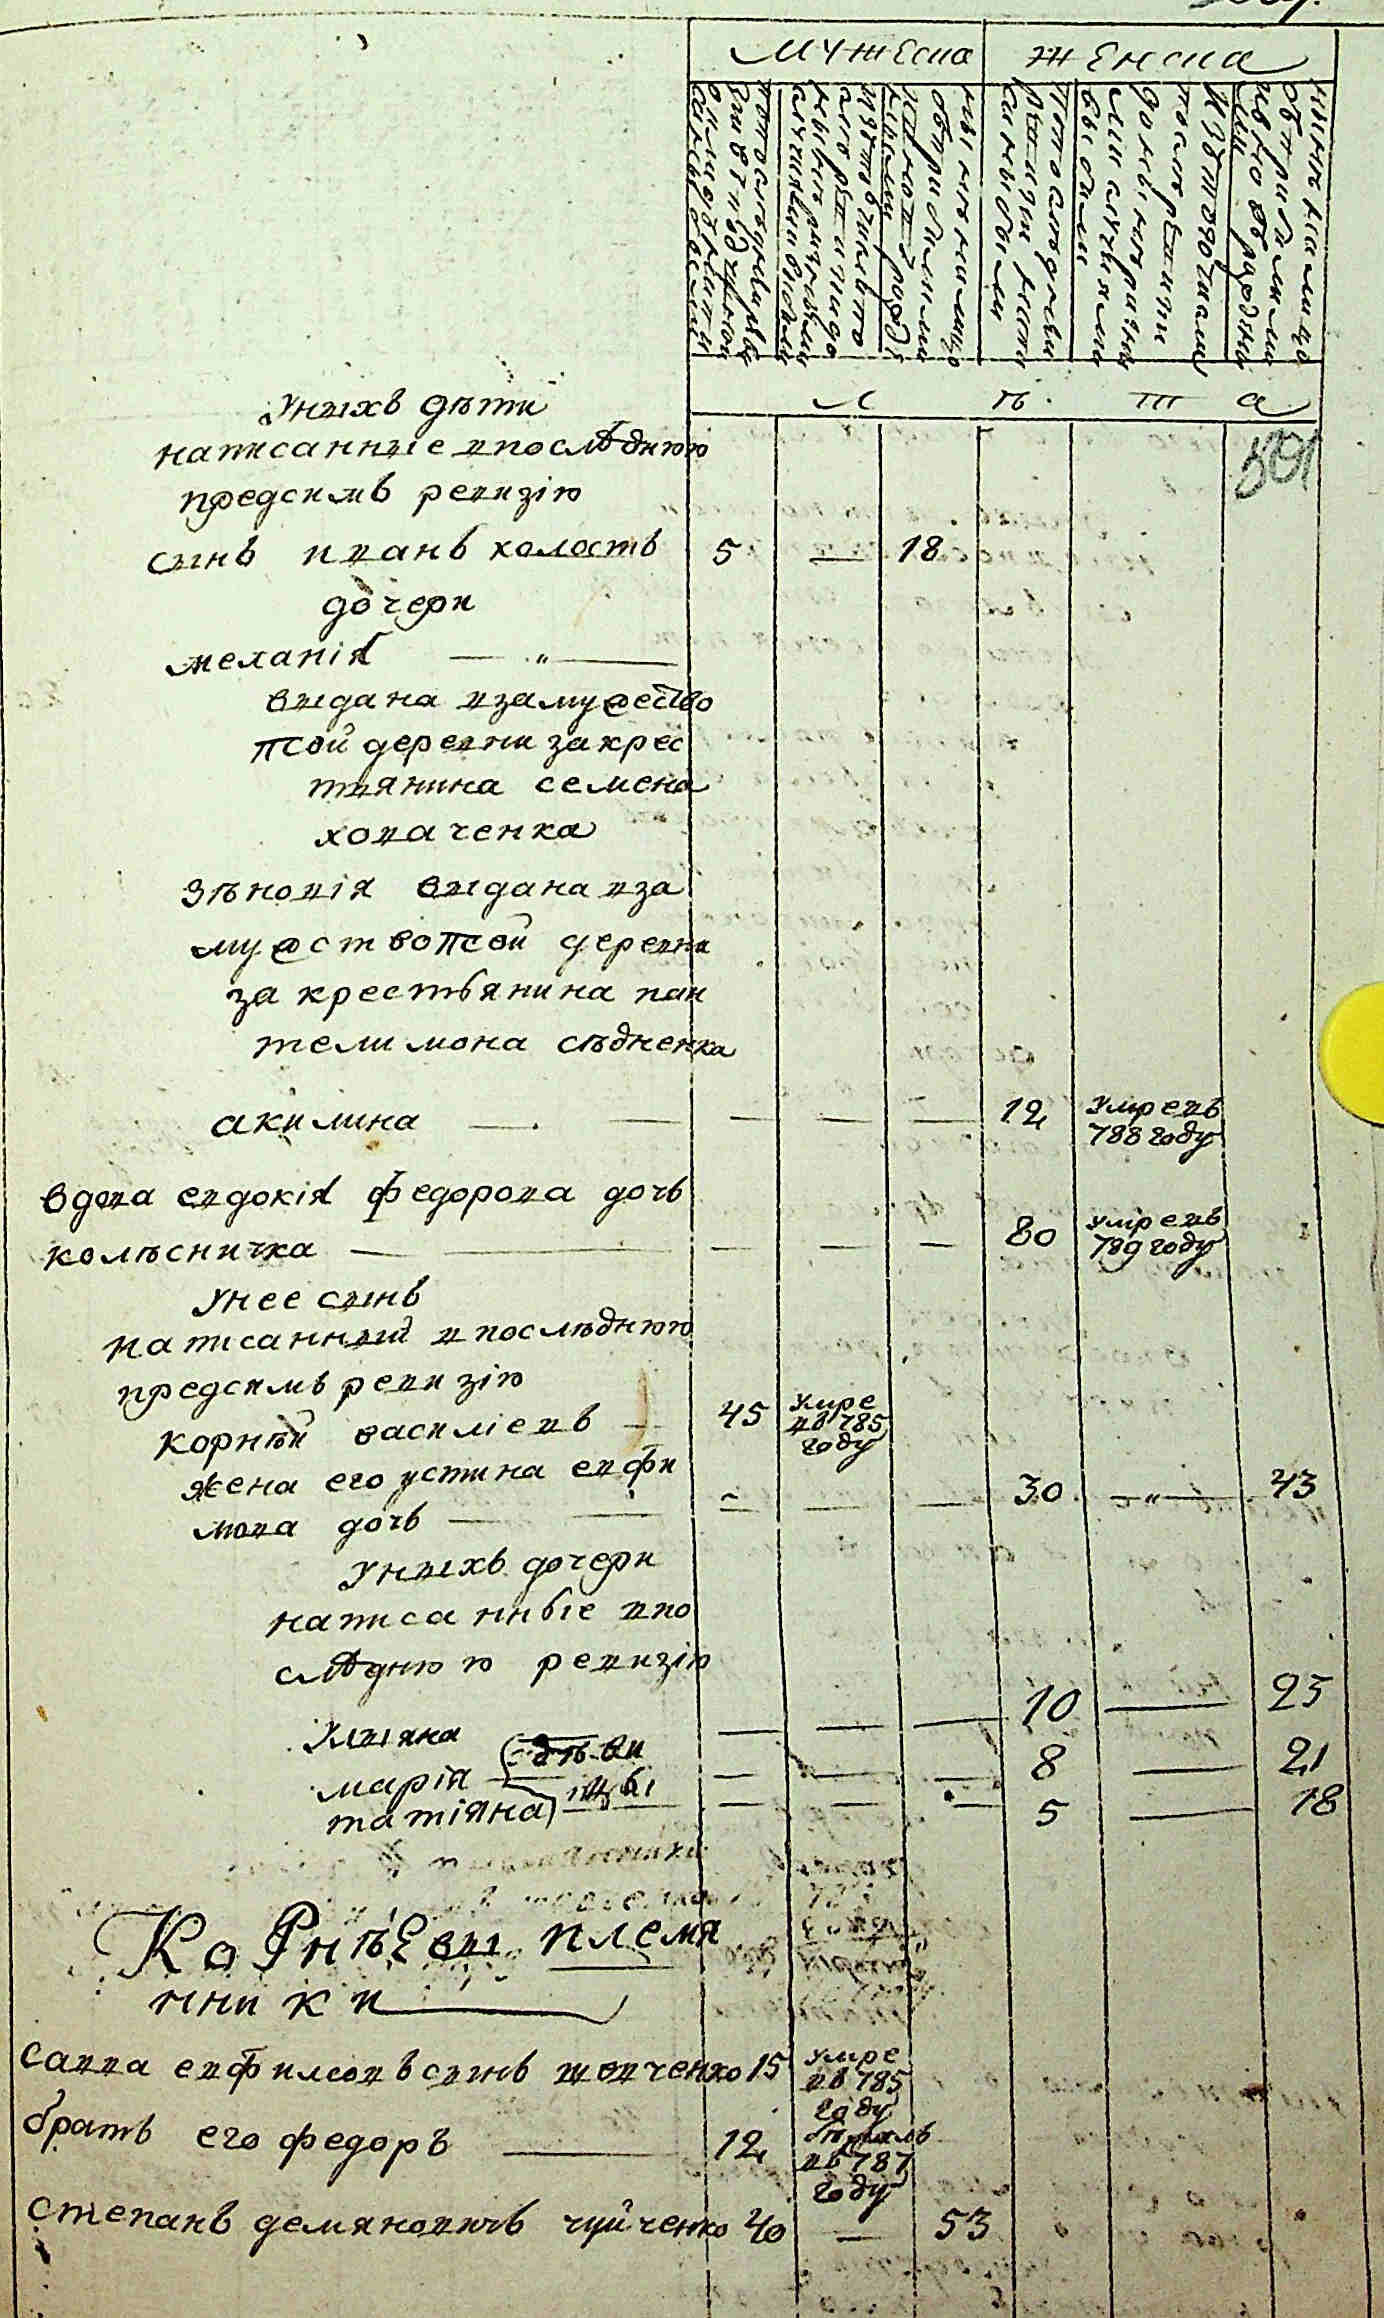 мужеска женска
л ѣ т а
501
у ныхъ дѣти
написанные в последнюю
пред симъ ревизію
сынъ иванъ холостъ 5 — 18
дочери
мелания — „ —
выдана в замужество
той деревни за крес
тянина семена
ховаченка
зѣновія выдана в за
мужство той деревни
за крестьянина пан
телимона сѣдненка
акилина — — — — — 12 умре въ
788 году
вдова евдокія федорова дочъ
колѣсничка — — — — 80 умре въ
789 году
у нее сынъ
написанный в последнюю
пред симъ ревизію
корнѣй василіевъ — 45 умре
въ 785
году
жена его устина евфи
мова дочъ — — — — — 30 — „ — 43
у ныхъ дочери
написанные в по
следнюю ревизію
уляна — — — 10 — 25
марія дѣви — — — 8 — 21
татіяна цы — — — 5 — 18
Корнѣевы племя
нники
савва евфимовъ сынъ шевченко 15 умре
въ 785
году
братъ его федоръ — 12 бѣжалъ
въ 787
году
степанъ демяновичъ чуйченко 40 — 53